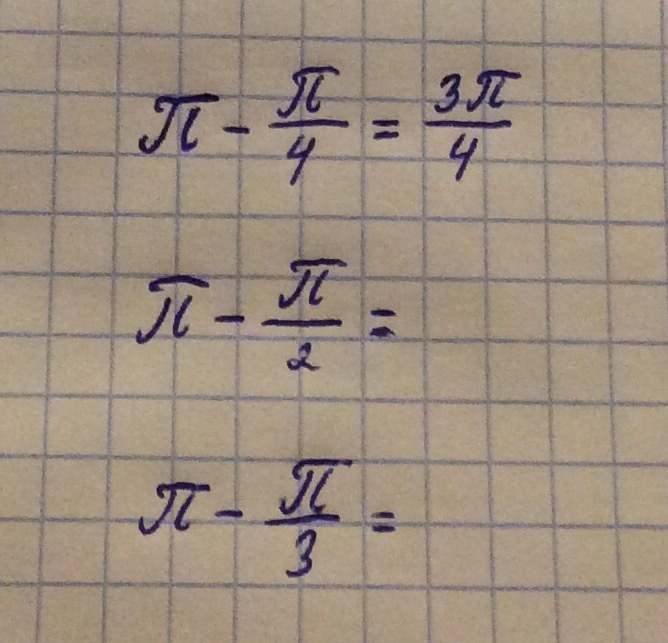 π - π/4 = 3π/4
π - π/2 =
π - π/3 =